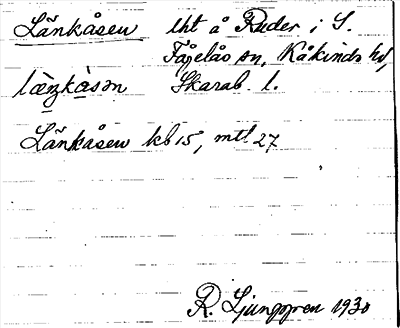 Länkåsen lht å Ruder i S.
Fågelås sn, Kåkinds hd,
læŋkàsən Skarab. l.
Länkåsen kb 15, mtl 27
R. Ljunggren 1930